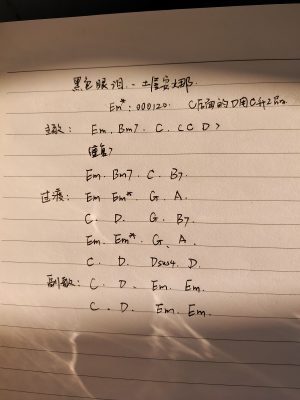 黑色眼泪 - 土屋安娜.
Em*: 000120. C后面的D用C升2品.
主歌: Em. Bm7. C. (C D)
重复7
Em. Bm7. C. B7.
过渡: Em Em*. G. A.
C. D. G. B7.
Em. Em*. G. A.
C. D. Dsus4. D.
副歌: C. D. Em. Em.
C. D. Em. Em.